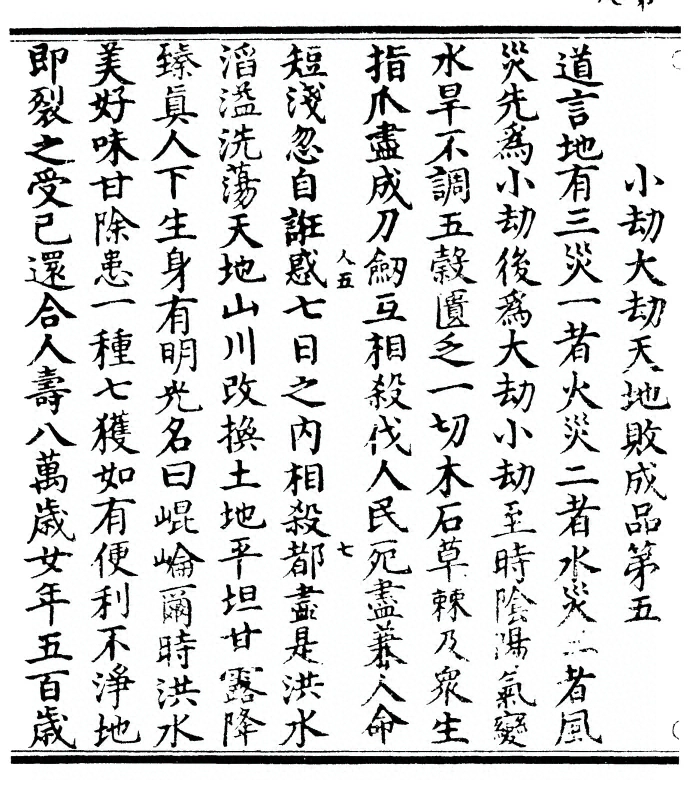 小劫大劫天地敗成品第五
道言地有三災一者火災二者水災三者風
災先爲小劫後爲大劫小劫至時陰陽氣變
水旱不調五穀匱乏一切木石草棘及衆生
指爪盡成刀劒互相殺伐人民死盡蕪人命
人五
七
短淺忽自誑惑七日之内相殺都盡是洪水
滔溢洗蕩天地山川改換土地平坦甘露降
臻眞人下生身有明光名曰崐崘爾時洪水
美好味甘除患一種七獲如有便利不淨地
即裂之受已還合人壽八萬歲女年五百歲